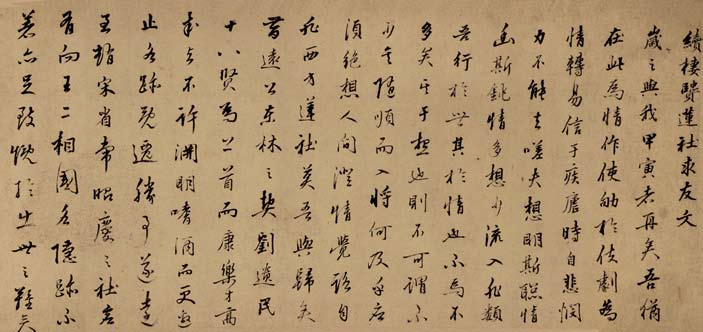 續棲賢蓮社求友文
歲之與我甲寅者再矣吾猶
在此為情作使劬於伎劇為
情轉易信于痎瘧時自悲憫
力不能去嗟夫想明斯聰情
幽斯鈍情多想少流入非類
吾行於世其於情也不為不
多矣其于想也則不可謂不
少矣隨順而入將何及乎應
須絕想人間澄情覺路自
非西方蓮社莫吾與歸矣
昔遠公東林之契劉遺民
十八賢為上首而康樂才高
求與不許淵明嗜酒而更
止名跡既遷勝事遂遠
至於宋省常昭慶之社首
有向王二相國名隱跡不
著亦足致慨於出世之難矣